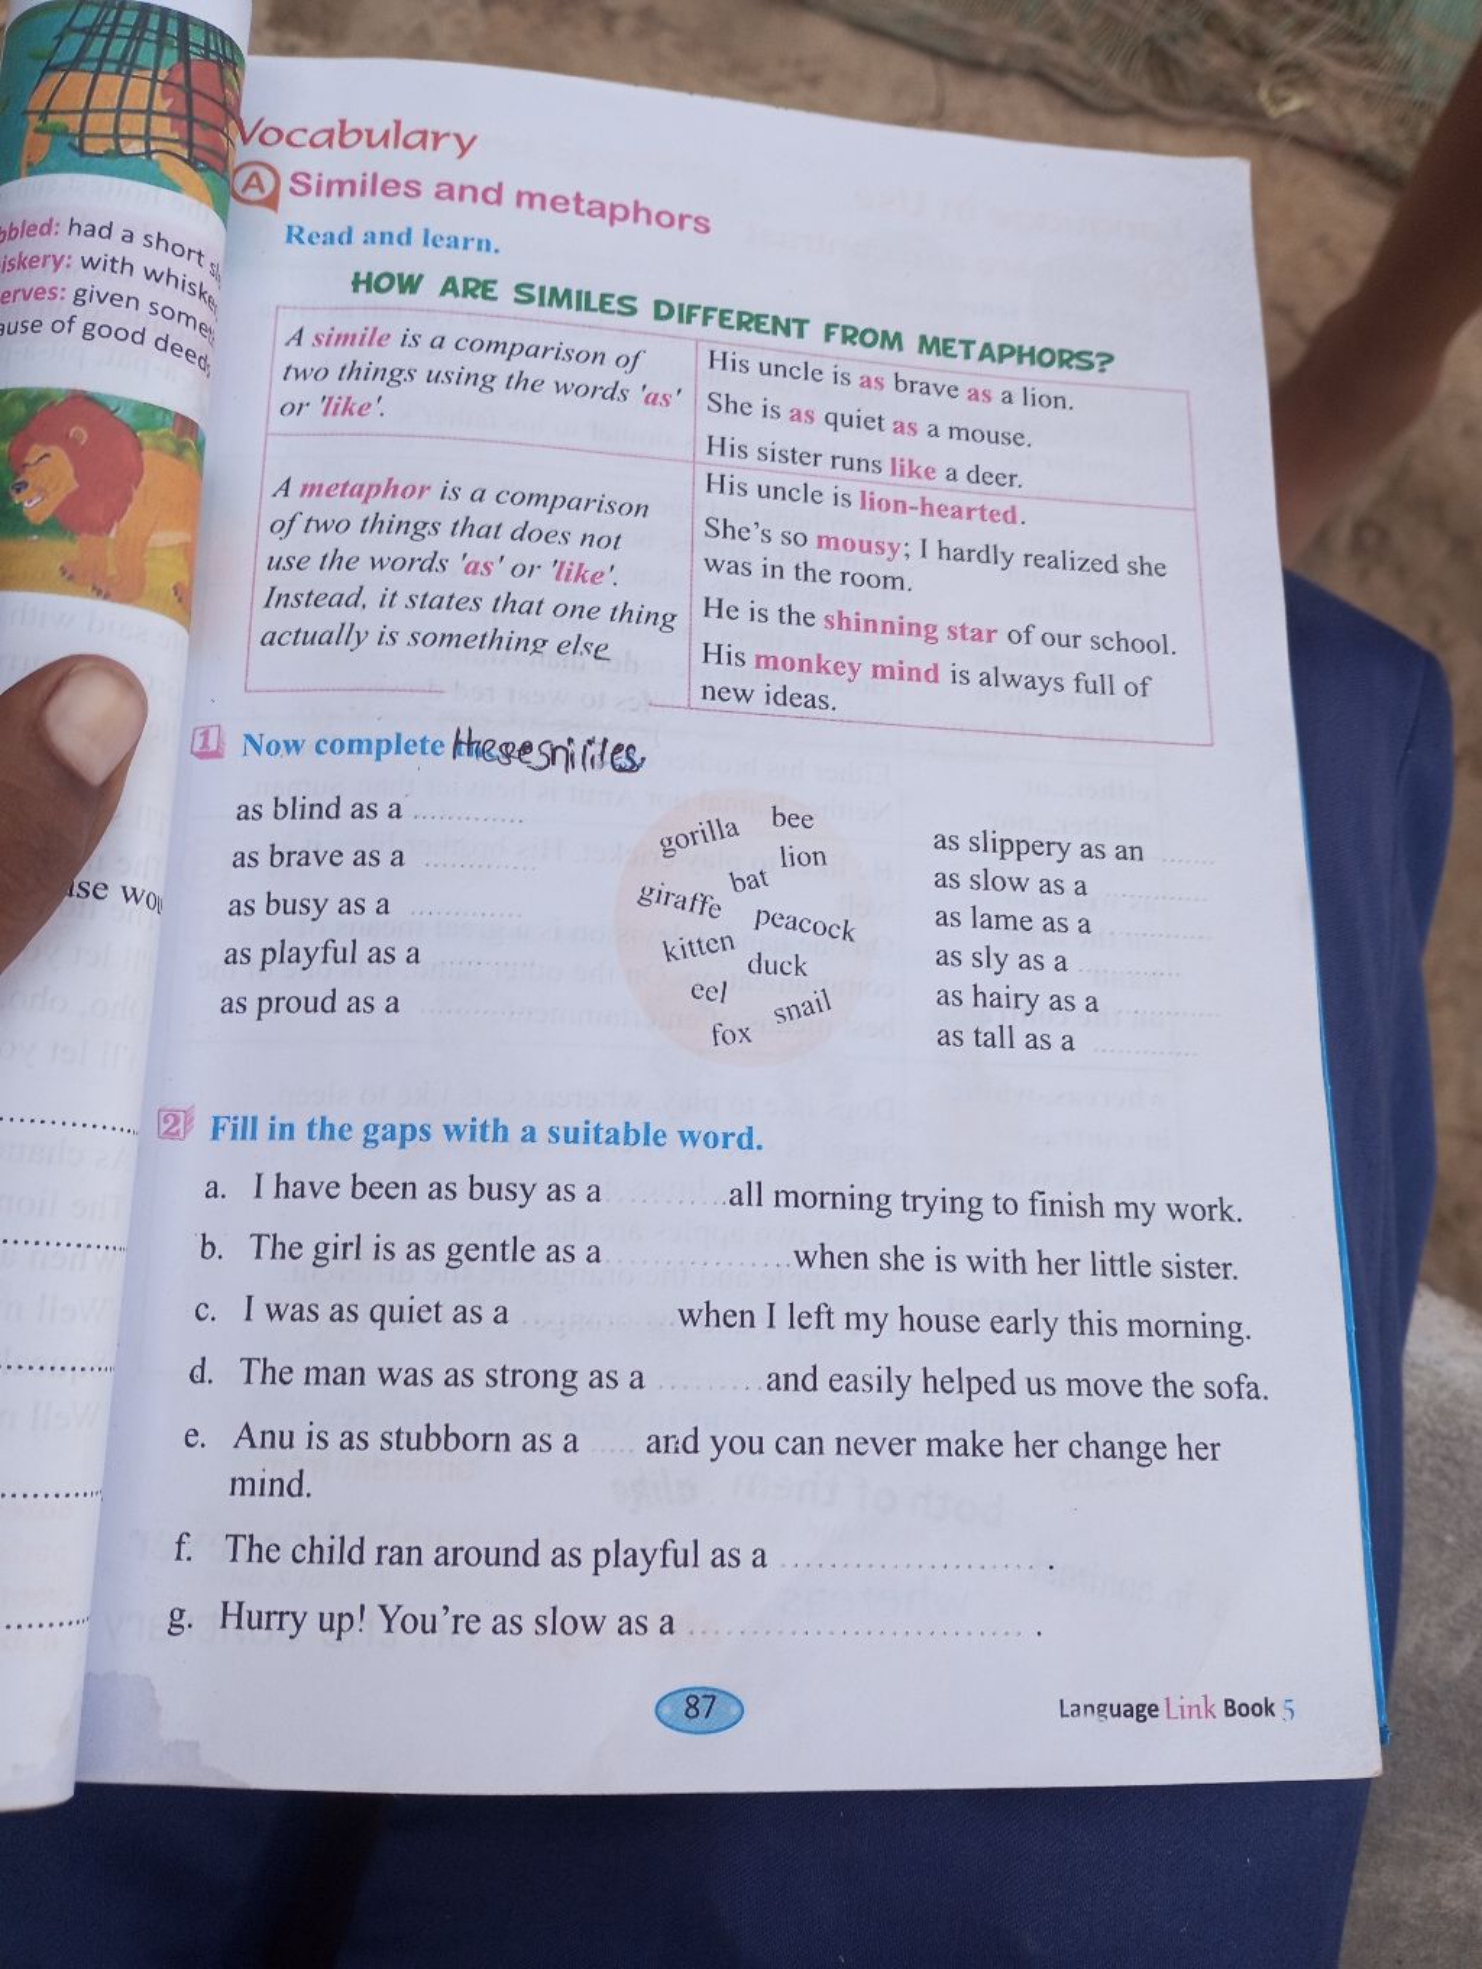 had a short
with whiske
given some
use of good deed
se wo
Vocabulary
A Similes and metaphors
Read and learn.
HOW ARE SIMILES DIFFERENT FROM METAPHORS?
A simile is a comparison of
two things using the words 'as'
or 'like'.
His uncle is as brave as a lion.
She is as quiet as a mouse.
His sister runs like a deer.
A metaphor is a comparison
of two things that does not
use the words 'as' or 'like'.
Instead, it states that one thing
actually is something else
His uncle is lion-hearted.
She's so mousy; I hardly realized she
was in the room.
He is the shinning star of our school.
His monkey mind is always full of
new ideas.
1 Now complete these
as blind as a ............
as brave as a ............
as busy as a ............
as playful as a ............
as proud as a ............
gorilla bee
lion
bat
giraffe peacock
kitten
duck
eel
snail
fox
as slippery as an ......
as slow as a ............
as lame as a ............
as sly as a ............
as hairy as a ............
as tall as a ............
2 Fill in the gaps with a suitable word.
a. I have been as busy as a ............ all morning trying to finish my work.
b. The girl is as gentle as a .................. when she is with her little sister.
c. I was as quiet as a .................. when I left my house early this morning.
d. The man was as strong as a .......... and easily helped us move the sofa.
e. Anu is as stubborn as a ..... and you can never make her change her
mind.
f. The child ran around as playful as a ............................ .
g. Hurry up! You're as slow as a .................................. .
87
Language Link Book 5